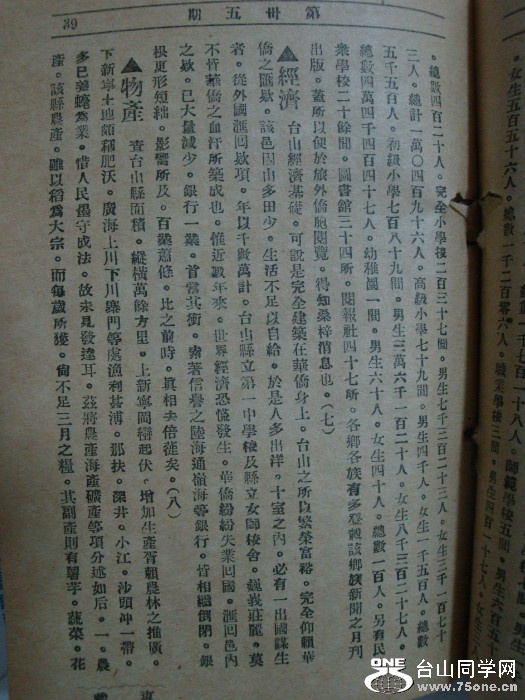 第卅五期
39
。總數四百二十人。完全小學校二百三十七間。男生七千三百二十三人。女生三千一百七十
三人。總計一萬〇四百九十六人。高級小學七十九間。男生四千人。女生一千五百人。總數
五千五百人。初級小學七百八十九間。男生三萬六千一百二十人。女生八千三百二十七人。
總數四萬四千四百四十七人。幼稚園一間。男生六十人。女生四十人。總數一百人。另有民
衆學校二十餘間。圖書館三十四所。閱報社四十七所。各鄉各族有多登載該鄉族新聞之月刊
出版。蓋所以便於旅外僑胞閱覽。得知桑梓消息也。(七)
▲經濟 台山經濟基礎。可說是完全建築在華僑身上。台山之所以繁榮富裕。完全仰賴華
僑之匯欵。該邑因山多田少。生活不足以自給。於是人多出洋。十室之內。必有一出國謀生
者。從外國滙回欵項。年以千數萬計。台山縣立第一中學校及縣立女師校舍。巍義莊麗。莫
不皆華僑之血汗所築成也。惟近數年來。世界經濟恐慌發生。華僑紛紛失業囘國。滙囘邑內
之欵。已大量減少。銀行一業。首當其衝。素著信譽之陸海通嶺海等銀行。皆相繼倒閉。銀
根更形短絀。影響所及。百業蕭條。比之前時。眞相去倍蓰矣。(八)
▲物產 查台山縣面積。縱橫萬餘方里。上新寧岡巒起伏。增加生產胥賴農林之推廣。
下新寧土地頗稱肥沃。廣海上川下川寨門等處漁利甚溥。那扶。深井。小江。沙頭冲一帶。
多已築蠔為業。惜人民墨守成法。故未見發達耳。茲將農產海產礦產等項分述如后。一。農
產。該縣農產。雖以稻為大宗。而每歲所獲。尙不足三月之糧。其副產則有薯芋。蔬菜。花
女生五百五十六人。總數一千二百零六人。職業學校三間。男生四百一十七人。
師範學校五間。
ONE
台山同学网
www.75one.cn